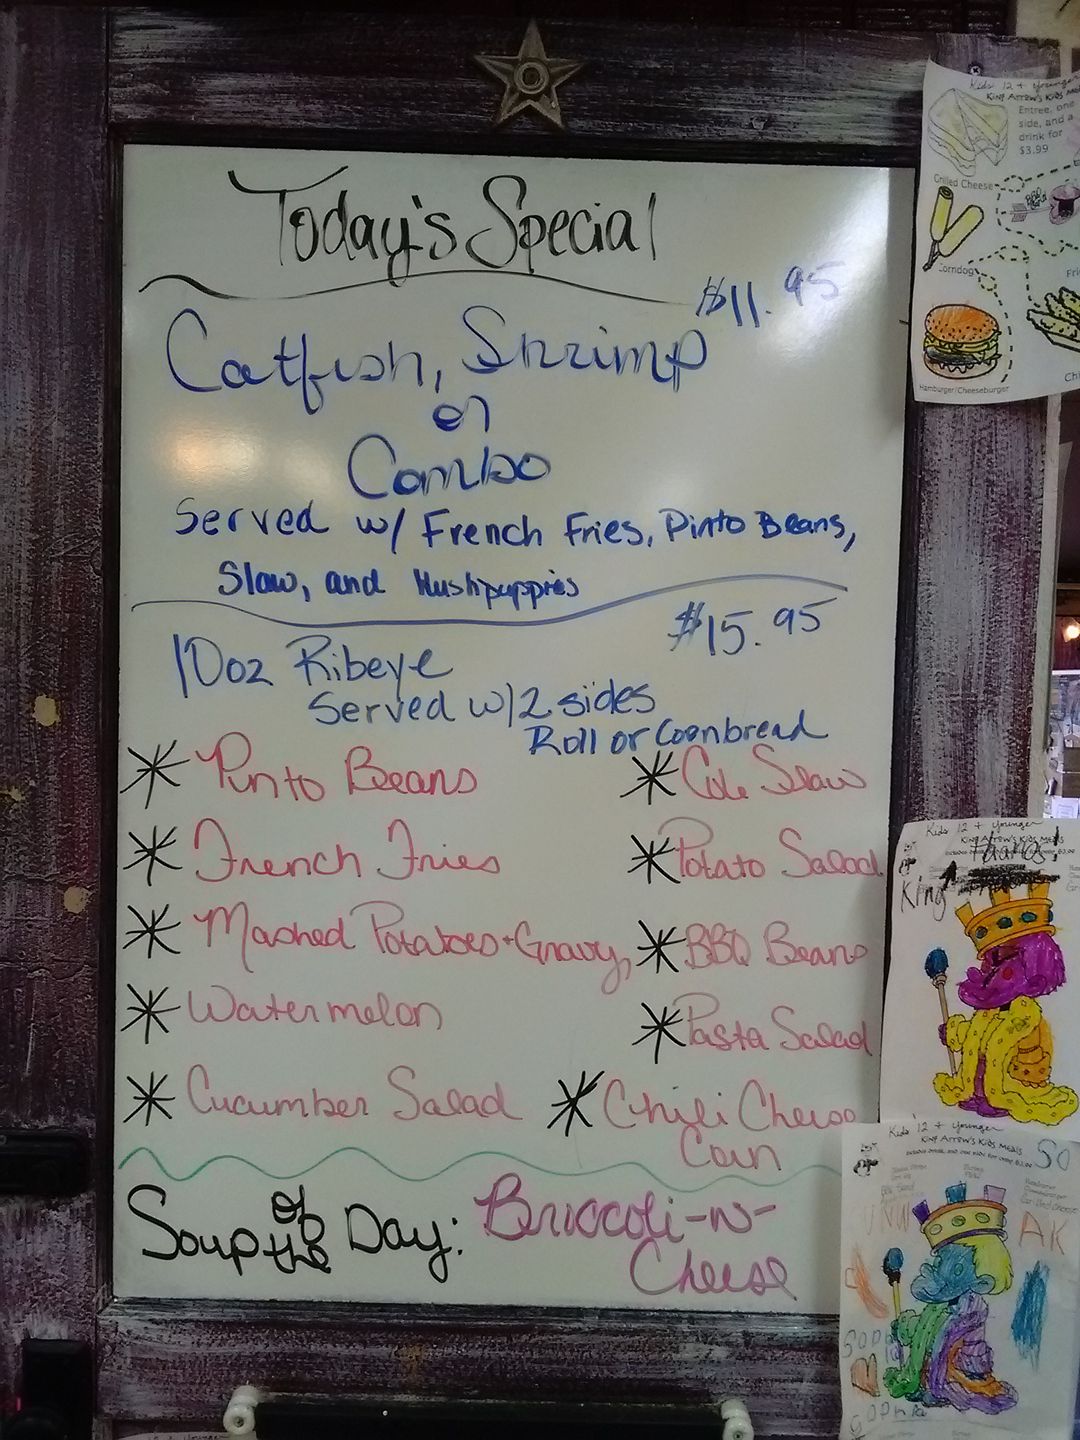 Today's Special
$11.95
Catfish, Shrimp
or
Combo
Served w/ French Fries, Pinto Beans,
Slaw, and Hushpuppies
$15.95
10oz Ribeye
Served w/2 sides
Roll or Cornbread
* Pinto Beans
* Cole Slaw
* French Fries
* Potato Salad
* Mashed Potatoes + Gravy,
* BBQ Beans
* Watermelon
* Pasta Salad
* Cucumber Salad
* Chili Cheese
Corn
Soup of the Day: Broccoli-n-
Cheese
Kids 12 + Younger
King Arrow's Kids Me
Entree, one
side, and a
drink for
$3.99
Grilled Cheese
Corndog
Fri
Hamburger/Cheeseburger
Chi
Kids 12 + Younger
King Arrow's Kids Meals
King
Kids 12 + Younger
King Arrow's Kids Meals
AK